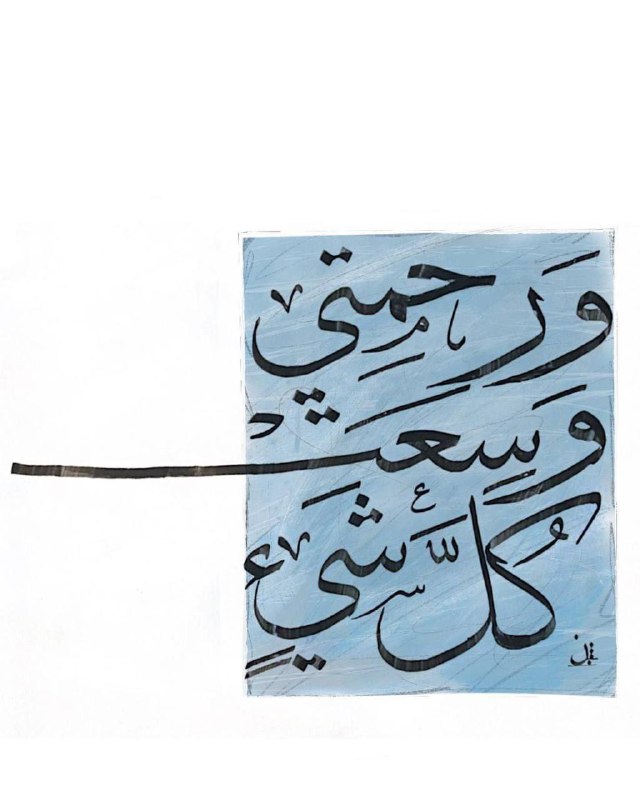 وَرَحمَتي
وَسِعَت
كُلَّ شَيءٍ